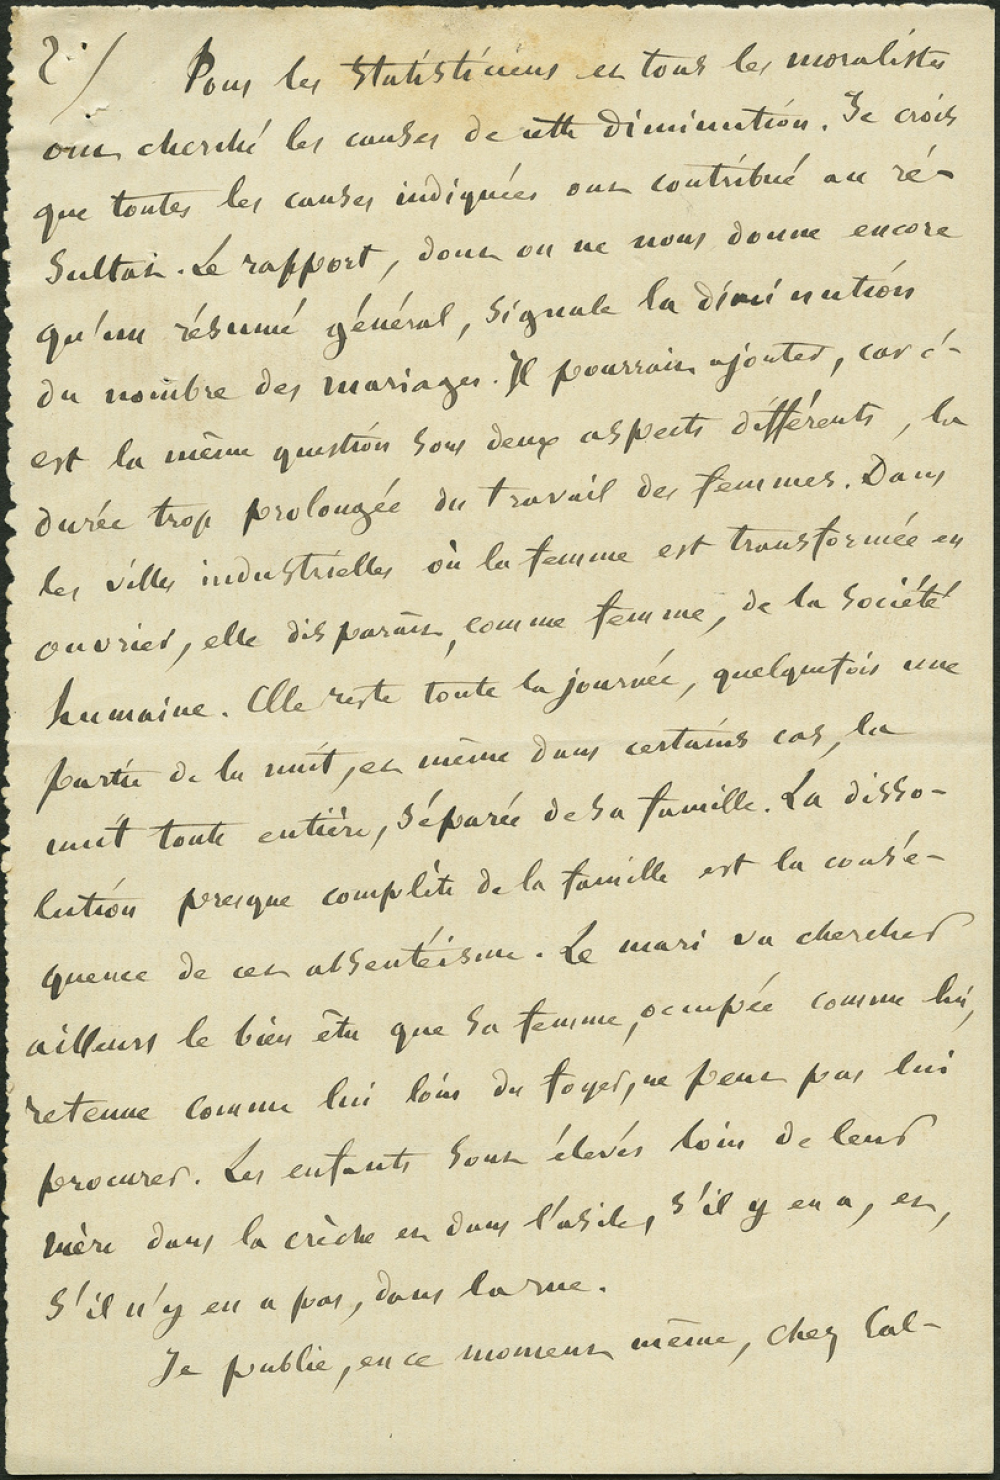 2º/ Tous les statisticiens et tous les moralistes
ont cherché les causes de cette diminution. Je crois
que toutes les causes indiquées ont contribué au ré-
sultat. Le rapport, dont on ne nous donne encore
qu'un résumé général, signale la diminution
du nombre des mariages. Il pourrait ajouter, car c'-
est la même question sous deux aspects différents, la
durée trop prolongée du travail des femmes. Dans
les villes industrielles où la femme est transformée en
ouvrier, elle disparaît, comme femme, de la société
humaine. Elle reste toute la journée, quelquefois une
partie de la nuit, et même dans certains cas, la
nuit toute entière, séparée de sa famille. La disso-
lution presque complète de la famille est la consé-
quence de cet absentéisme. Le mari va chercher
ailleurs le bien être que sa femme, ocupée comme lui,
retenue comme lui loin du foyer, ne peut pas lui
procurer. Les enfants sont élevés loin de leur
mère dans la crèche et dans l'asile, s'il y en a, et,
s'il n'y en a pas, dans la rue.
Je publie, en ce moment même, chez Cal-